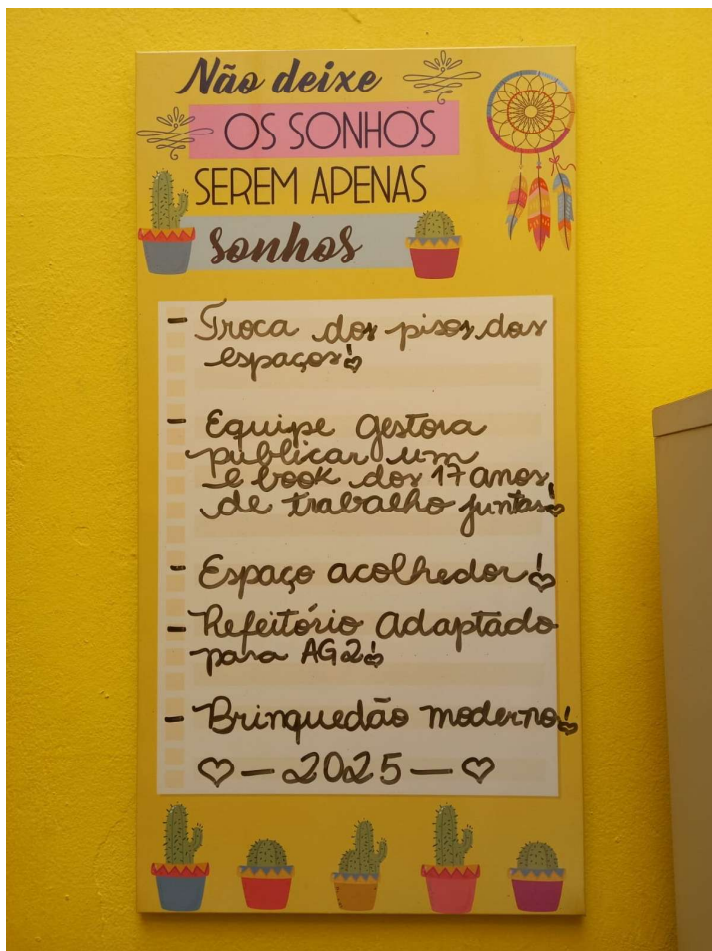 Não deixe
OS SONHOS
SEREM APENAS
sonhos
- Troca dos pisos dos
espaços!
- Equipe Gestora
publicar um
e book dos 17 anos
de trabalho juntas!
- Espaço acolhedor!
- Refeitório Adaptado
para AG2!
- Brinquedão moderno!
♡ - 2025 - ♡